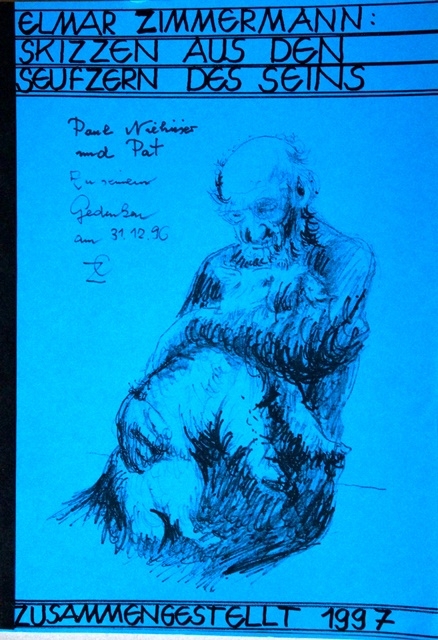 ELMAR ZIMMERMANN:
SKIZZEN AUS DEN
SEUFZERN DES SEINS
Paul
und Pat
Gedenken
am 31.12.96
ZUSAMMENGESTELLT 1997